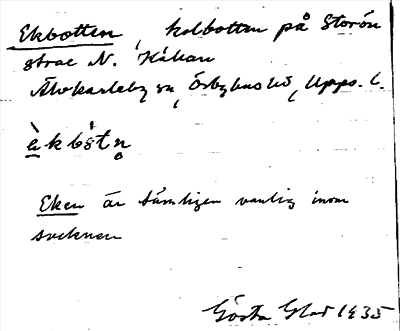 Ekbotten, kolbotten på Storön
strax N. Kåkan
Älvkarleby sn, Örbyhus hd, Upps. l.
èkbòtn̥
Eken är tämligen vanlig inom
socknen
Gösta Glad 1935